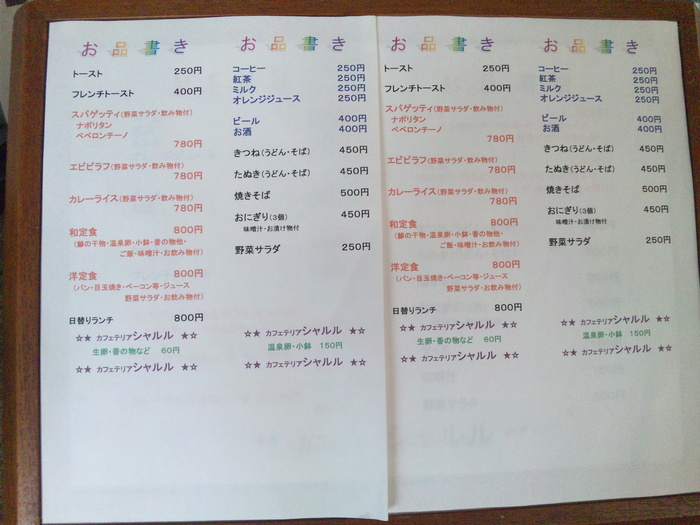 お品書き
トースト 250円
フレンチトースト 400円
スパゲッティ(野菜サラダ・飲み物付)
ナポリタン
ペペロンチーノ
780円
エビピラフ(野菜サラダ・飲み物付)
780円
カレーライス(野菜サラダ・飲み物付)
780円
和定食 800円
(鯵の干物・温泉卵・小鉢・香の物他・
ご飯・味噌汁・お飲み物付)
洋定食 800円
(パン・目玉焼き・ベーコン等・ジュース
野菜サラダ・お飲み物付)
日替りランチ 800円
☆★ カフェテリアシャルル ★☆
生卵・香の物など 60円
☆★ カフェテリアシャルル ★☆
お品書き
コーヒー 250円
紅茶 250円
ミルク 250円
オレンジジュース 250円
ビール 400円
お酒 400円
きつね(うどん・そば) 450円
たぬき(うどん・そば) 450円
焼きそば 500円
おにぎり(3個) 450円
味噌汁・お漬け物付
野菜サラダ 250円
☆★ カフェテリアシャルル ★☆
温泉卵・小鉢 150円
☆★ カフェテリアシャルル ★☆
お品書き
トースト 250円
フレンチトースト 400円
スパゲッティ(野菜サラダ・飲み物付)
ナポリタン
ペペロンチーノ
780円
エビピラフ(野菜サラダ・飲み物付)
780円
カレーライス(野菜サラダ・飲み物付)
780円
和定食 800円
(鯵の干物・温泉卵・小鉢・香の物他・
ご飯・味噌汁・お飲み物付)
洋定食 800円
(パン・目玉焼き・ベーコン等・ジュース
野菜サラダ・お飲み物付)
日替りランチ 800円
☆★ カフェテリアシャルル ★☆
生卵・香の物など 60円
☆★ カフェテリアシャルル ★☆
お品書き
コーヒー 250円
紅茶 250円
ミルク 250円
オレンジジュース 250円
ビール 400円
お酒 400円
きつね(うどん・そば) 450円
たぬき(うどん・そば) 450円
焼きそば 500円
おにぎり(3個) 450円
味噌汁・お漬け物付
野菜サラダ 250円
☆★ カフェテリアシャルル ★☆
温泉卵・小鉢 150円
☆★ カフェテリアシャルル ★☆